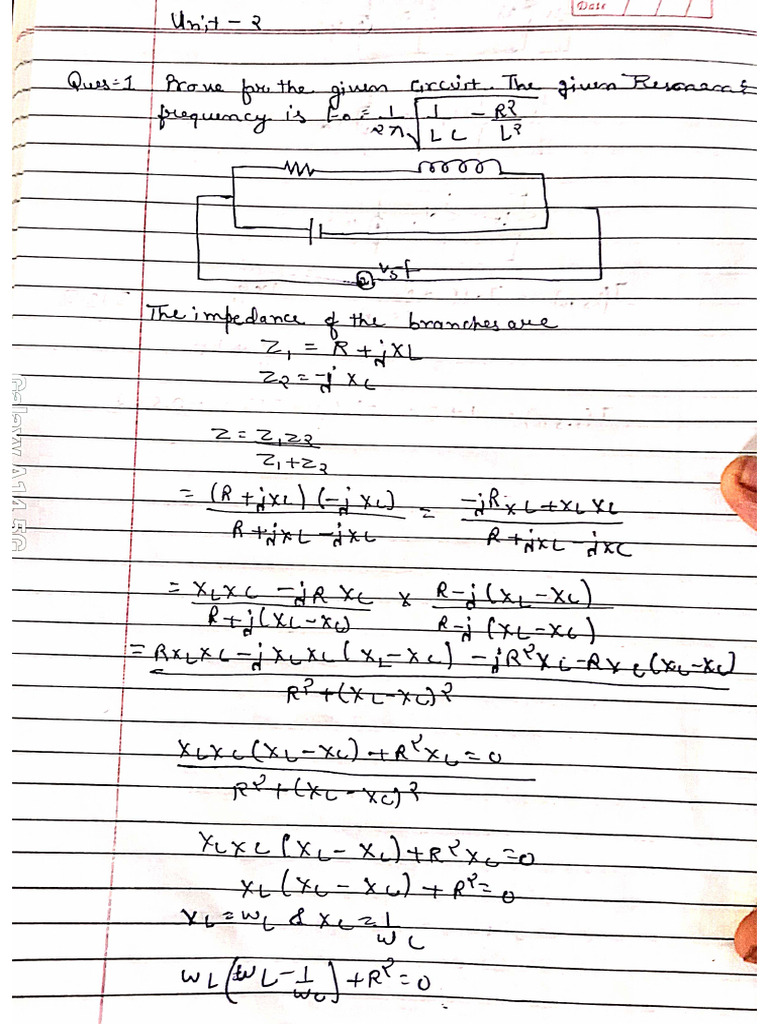 Date
Unit - 2
Ques=1 Prove for the given circuit. The given Resonance
frequency is F₀ = 1/2π √(1/LC - R²/L²)
Vsf
The impedance of the branches are
Z₁ = R + jXL
Z₂ = -j XC
Z = Z₁Z₂/Z₁+Z₂
= (R + jXL) (-j XC)/R + jXL - jXC = -jRXC + XL XC/R + jXL - jXC
= XLXC - jR XC/R + j(XL - XC) × R - j(XL - XC)/R - j(XL - XC)
= RXLXC - j XLXC (XL - XC) - jR²XC - RXC (XL - XC)/R² + (XL - XC)²
XLXC (XL - XC) + R²XC = 0/R² + (XL - XC)²
XLXC (XL - XC) + R²XC = 0
XL (XL - XC) + R² = 0
XL = WL & XC = 1/WC
WL (WL - 1/WC) + R² = 0
Galaxy A14 5G